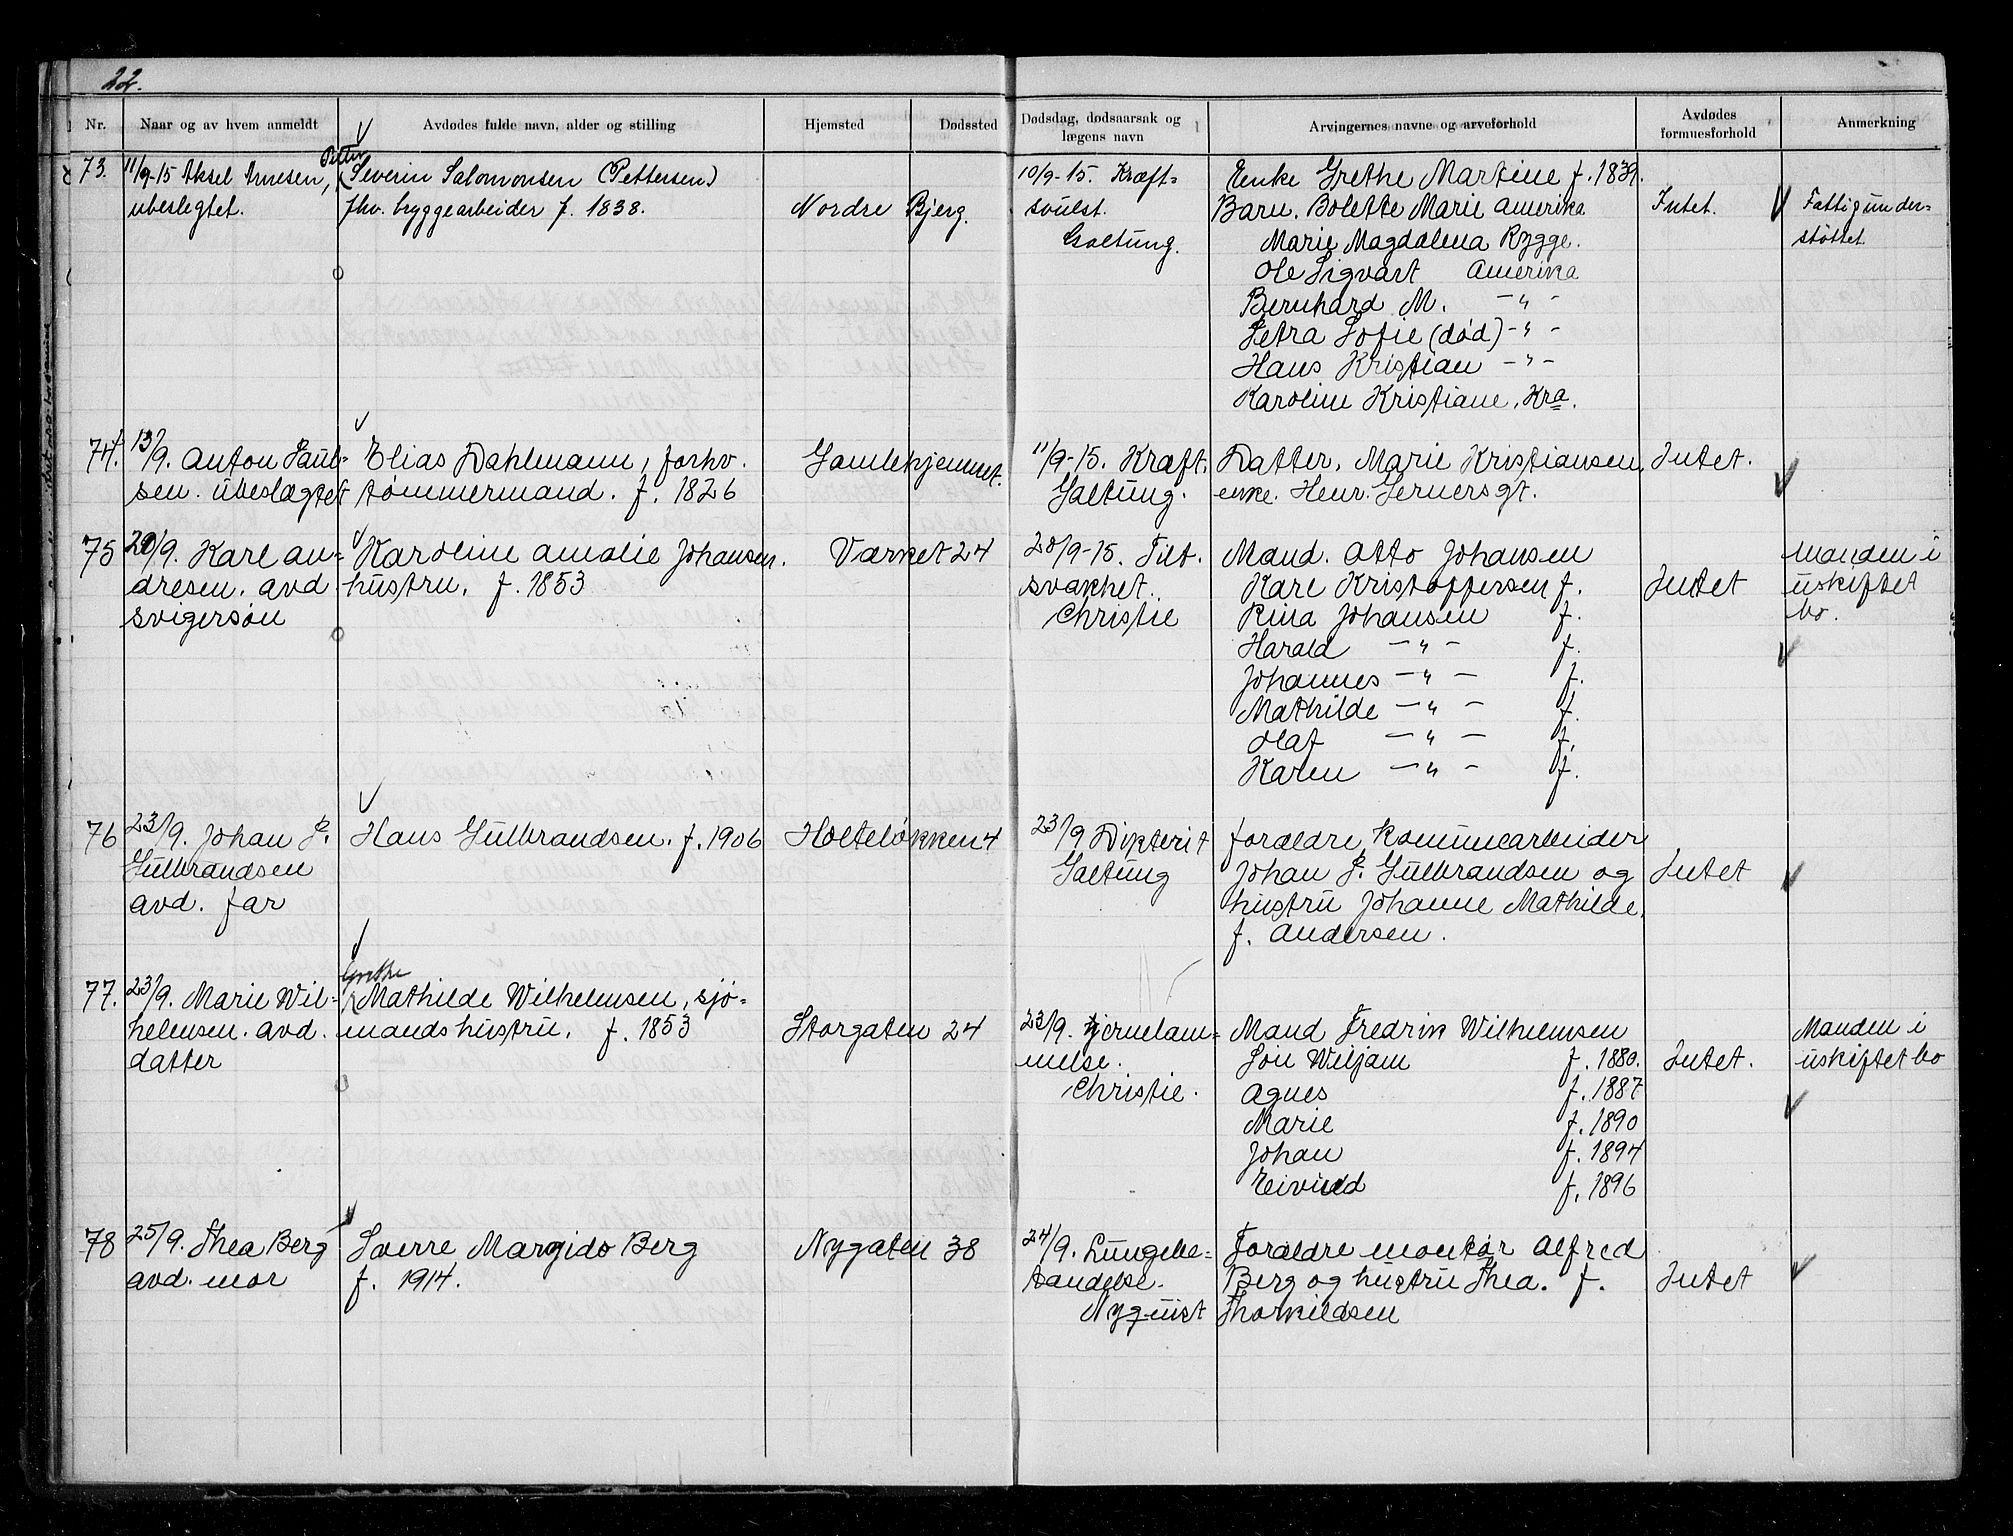 22.
Nr.
Naar og av hvem anmeldt
Avdødes fulde navn, alder og stilling
Hjemsted
Dødssted
Dødsdag, dødsaarsak og
lægens navn
Arvingernes navne og arveforhold
Avdødes
formuesforhold
Anmerkning
73.
11/9-15 Aksel Arnesen,
ubeslegtet.
Petter
Severin Salomonsen (Pettersen)
fhv. bryggearbeider f. 1838.
Nordre Bjerg.
10/9-15. Kræft-
svulst.
Galtung.
Enke Grethe Martine f. 1839.
Barn. Bolette Marie Amerika
Marie Magdalena Rygge.
Ole Sigvart Amerika
Bernhard M. - " -
Petra Sofie (død) - " -
Hans Kristian - " -
Karoline Kristiane, Kra.
Intet.
Fattigunder-
støttet.
74.
13/9. Anton Paul-
sen. ubeslægtet
Elias Dahlmann, forhv.
tømmermand. f. 1826
Gamlehjemmet.
11/9-15. Kræft.
Galtung.
Datter. Marie Kristiansen,
enke. Henr. Gernersgt.
Intet.
75
20/9. Karl An-
dresen. avd
svigersøn
Karoline Amalie Johansen.
hustru. f. 1853
Værket 24
20/9-15. Tilt.
svakhet.
Christie
Mand. Otto Johansen
Karl Kristoffersen f.
Rina Johansen f.
Harald - " - f.
Johannes - " - f.
Mathilde - " - f.
Olaf - " - f.
Karen - " - f.
Intet
Manden i
uskiftet
bo.
76
23/9. Johan P.
Gulbrandsen
avd. far
Hans Gulbrandsen. f. 1906
Holteløkken 4
23/9 Difterit
Galtung
forældre, kommunearbeider
Johan P. Gulbrandsen og
hustru Johanne Mathilde,
f. Andersen.
Intet
77.
23/9. Marie Wil-
helmsen. avd.
datter
Grethe
Mathilde Wilhelmsen, sjø-
mandshustru. f. 1853
Storgaten 24
23/9. Hjernelam-
melse.
Christie.
Mand Fredrik Wilhelmsen
Søn Wiljam f. 1880.
Agnes f. 1887
Marie f. 1890
Johan f. 1894
Eivind f. 1896
Intet.
Manden i
uskiftet bo
78
25/9. Thea Berg
avd. mor
Sverre Margido Berg
f. 1914.
Nygaten 38
24/9. Lungebe-
tændelse.
Nyquist
Forældre montør Alfred
Berg og hustru Thea. f.
Thorkildsen
Intet